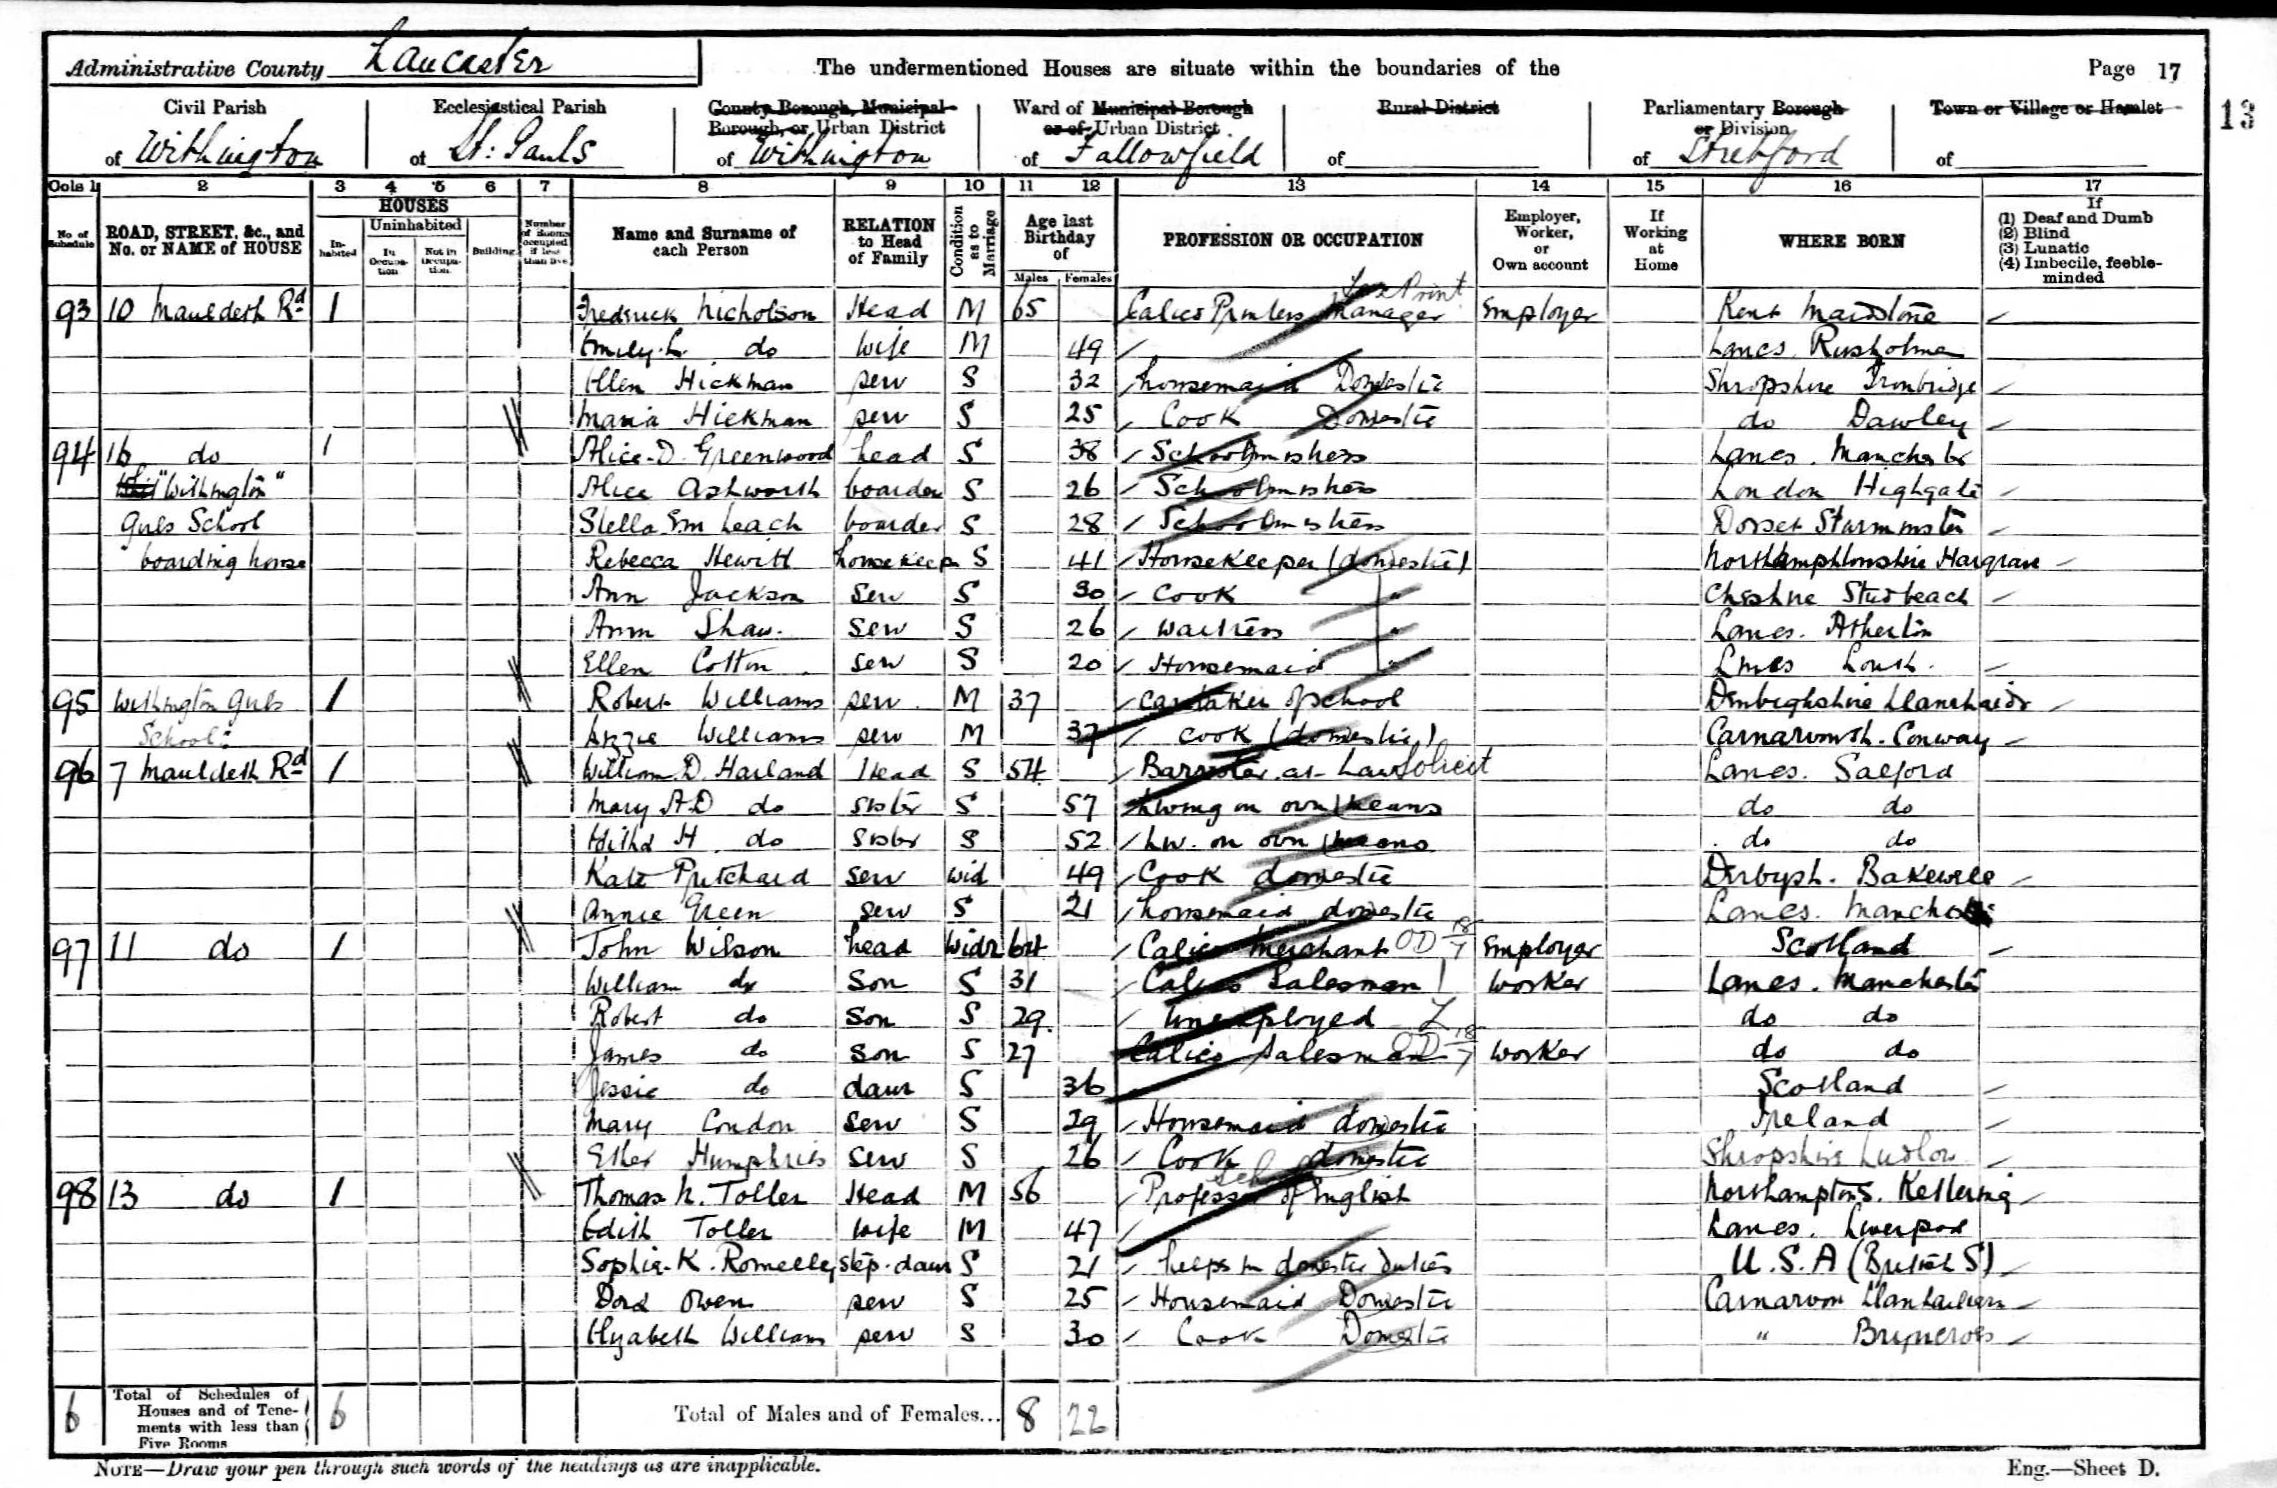 Administrative County Lancaster The undermentioned Houses are situate within the boundaries of the Page 17
13
Civil Parish Ecclesiastical Parish County Borough, Municipal Borough, or Urban District Ward of Municipal Borough or of Urban District Rural District Parliamentary Borough or Division Town or Village or Hamlet
of Withington of St: Pauls of Withington of Fallowfield of of Stretford of
Cols 1 2 3 4 5 6 7 8 9 10 11 12 13 14 15 16 17
No of Schedule ROAD, STREET, &c., and No. or NAME of HOUSE HOUSES Inhabited Uninhabited In Occupation Not in Occupation Building Number of Rooms occupied if less than five Name and Surname of each Person RELATION to Head of Family Condition as to Marriage Age last Birthday of Males Females PROFESSION OR OCCUPATION Employer, Worker, or Own account If Working at Home WHERE BORN If (1) Deaf and Dumb (2) Blind (3) Lunatic (4) Imbecile, feeble-minded
93 10 Mauldeth Rd 1 Frederick Nicholson Head M 65 Calico Printers Manager Print Employer Kent Maidstone
Emily. L. do wife M 49 Lancs. Rusholme
Ellen Hickman serv S 32 housemaid Domestic Shropshire Ironbridge
Maria Hickman serv S 25 Cook Domestic do Dawley
94 16 do 1 Alice. D. Greenwood head S 38 Schoolmistress Lancs. Manchester
"Withington" Alice Ashworth boarder S 26 Schoolmistress London Highgate
Girls School Stella Em Leach boarder S 28 Schoolmistress Dorset Sturminster
boarding house Rebecca Hewitt housekeep S 41 Housekeeper (domestic) Northamptonshire Hargrave
Ann Jackson serv S 30 Cook " Cheshire
Ann Shaw. serv S 26 Waitress " Lancs. Atherton
Ellen Cotton serv S 20 Housemaid " Lincs Louth.
95 Withington Girls 1 Robert Williams serv M 37 Caretaker of School Denbighshire
School: Lizzie Williams serv M 37 Cook (domestic) Carnarvonsh. Conway
96 7 Mauldeth Rd 1 William. D. Harland Head S 54 Barrister. at- Law Solicit Lancs. Salford
Mary A.D do sister S 57 Living on own means do do
Hilda H. do sister S 52 Liv. on own means do do
Kate Pritchard serv wid 49 Cook domestic Derbysh. Bakewell
Annie Green serv S 21 housemaid domestic Lancs. Manchester
97 11 do 1 John Wilson head Widr 64 Calico Merchant OD 18/7 Employer Scotland
William do son S 31 Calico Salesman Worker Lancs. Manchester
Robert do son S 29 Unemployed do do
James do son S 27 Calico Salesman OD 18/7 Worker do do
Jessie do daur S 36 Scotland
Mary Condon serv S 29 Housemaid domestic Ireland
Ester Humphries serv S 26 Cook domestic Shropshire Ludlow
98 13 do 1 Thomas N. Toller Head M 56 Professor of English Northamptons. Kettering
Edith Toller wife M 47 Lancs. Liverpool
Sophia. K. Romelley step. daur S 21 helps in domestic duties U.S.A (British S)
Dora Owen serv S 25 Housemaid Domestic Carnarvon
Elizabeth Williams serv S 30 Cook Domestic " Bryncroes
6 Total of Schedules of Houses and of Tenements with less than Five Rooms 6 Total of Males and of Females... 8 22
NOTE—Draw your pen through such words of the headings as are inapplicable. Eng.—Sheet D.